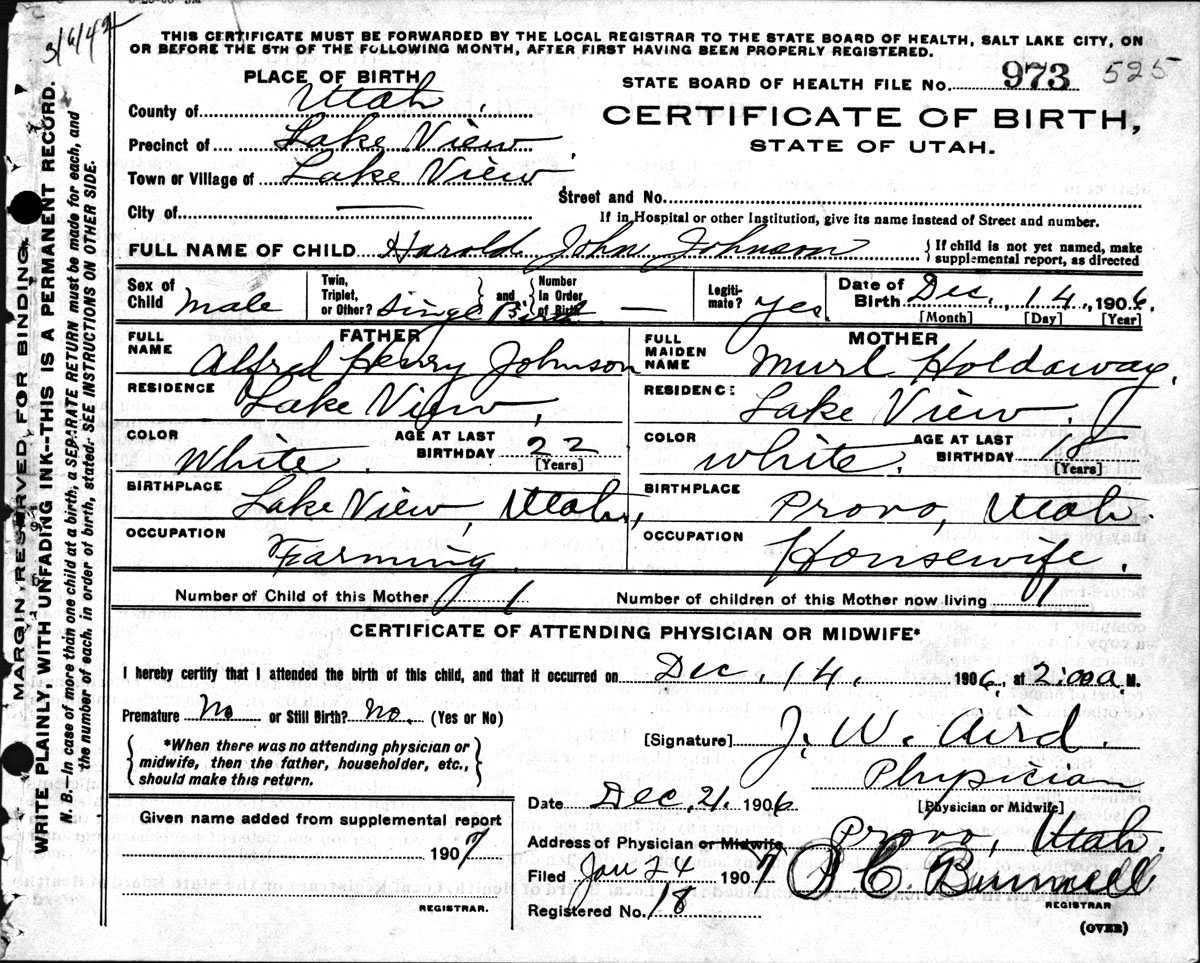 3/6/42
THIS CERTIFICATE MUST BE FORWARDED BY THE LOCAL REGISTRAR TO THE STATE BOARD OF HEALTH, SALT LAKE CITY, ON
OR BEFORE THE 5TH OF THE FOLLOWING MONTH, AFTER FIRST HAVING BEEN PROPERLY REGISTERED.
PLACE OF BIRTH
STATE BOARD OF HEALTH FILE No. 973 525
County of Utah
CERTIFICATE OF BIRTH,
STATE OF UTAH.
Precinct of Lake View
Town or Village of Lake View
Street and No.
City of —
If in Hospital or other Institution, give its name instead of Street and number.
FULL NAME OF CHILD Harold John Johnson { If child is not yet named, make supplemental report, as directed
Sex of Child Male Twin, Triplet, or Other? Singe Birth { and } Number in Order of Birth — Legitimate? Yes. Date of Birth Dec. 14, 1906.
[Month] [Day] [Year]
FATHER MOTHER
FULL NAME Alfred Henry Johnson FULL MAIDEN NAME Murl Holdaway.
RESIDENCE Lake View, RESIDENCE Lake View,
COLOR White. AGE AT LAST BIRTHDAY 22 [Years] COLOR White. AGE AT LAST BIRTHDAY 18 [Years]
BIRTHPLACE Lake View, Utah, BIRTHPLACE Provo, Utah.
OCCUPATION Farming. OCCUPATION Housewife.
Number of Child of this Mother 1 Number of children of this Mother now living 1
CERTIFICATE OF ATTENDING PHYSICIAN OR MIDWIFE*
I hereby certify that I attended the birth of this child, and that it occurred on Dec. 14. 1906, at 2:00 a. M.
Premature No or Still Birth? No. (Yes or No)
{ *When there was no attending physician or midwife, then the father, householder, etc., should make this return. }
[Signature] J. W. Aird.
Physician
[Physician or Midwife]
Date Dec. 21. 1906
Given name added from supplemental report
1907
REGISTRAR.
Address of Physician or Midwife Provo, Utah.
Filed Jan 24 1907 P. C. Bunnell
REGISTRAR
Registered No. 18
(OVER)
MARGIN RESERVED FOR BINDING.
WRITE PLAINLY, WITH UNFADING INK--THIS IS A PERMANENT RECORD.
N. B.—In case of more than one child at a birth, a SEPARATE RETURN must be made for each, and
the number of each, in order of birth, stated. SEE INSTRUCTIONS ON OTHER SIDE.